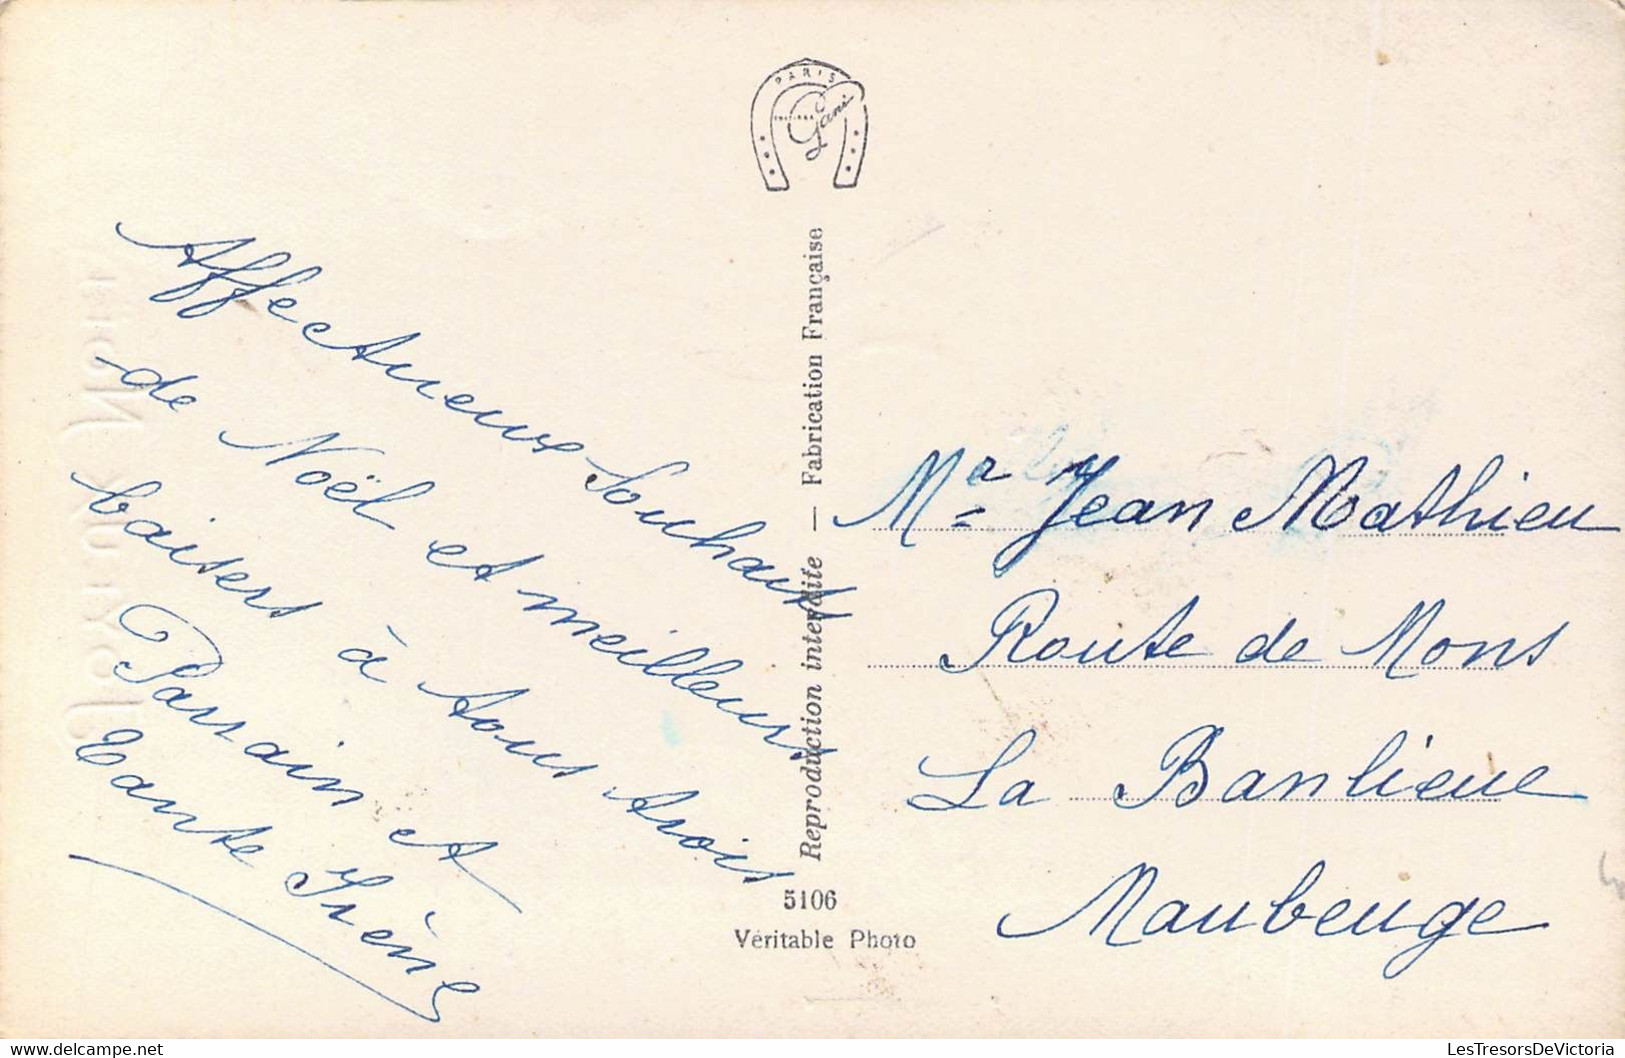 PARIS
Gani
Affectueux souhaits
de Noël et meilleurs
baisers à tous trois
Parrain et
Tante Irène
Reproduction interdite — Fabrication Française
5106
Véritable Photo
Mr Jean Mathieu
Route de Mons
La Banlieue
Maubeuge
Joyeux Noël
LesTresorsDeVictoria